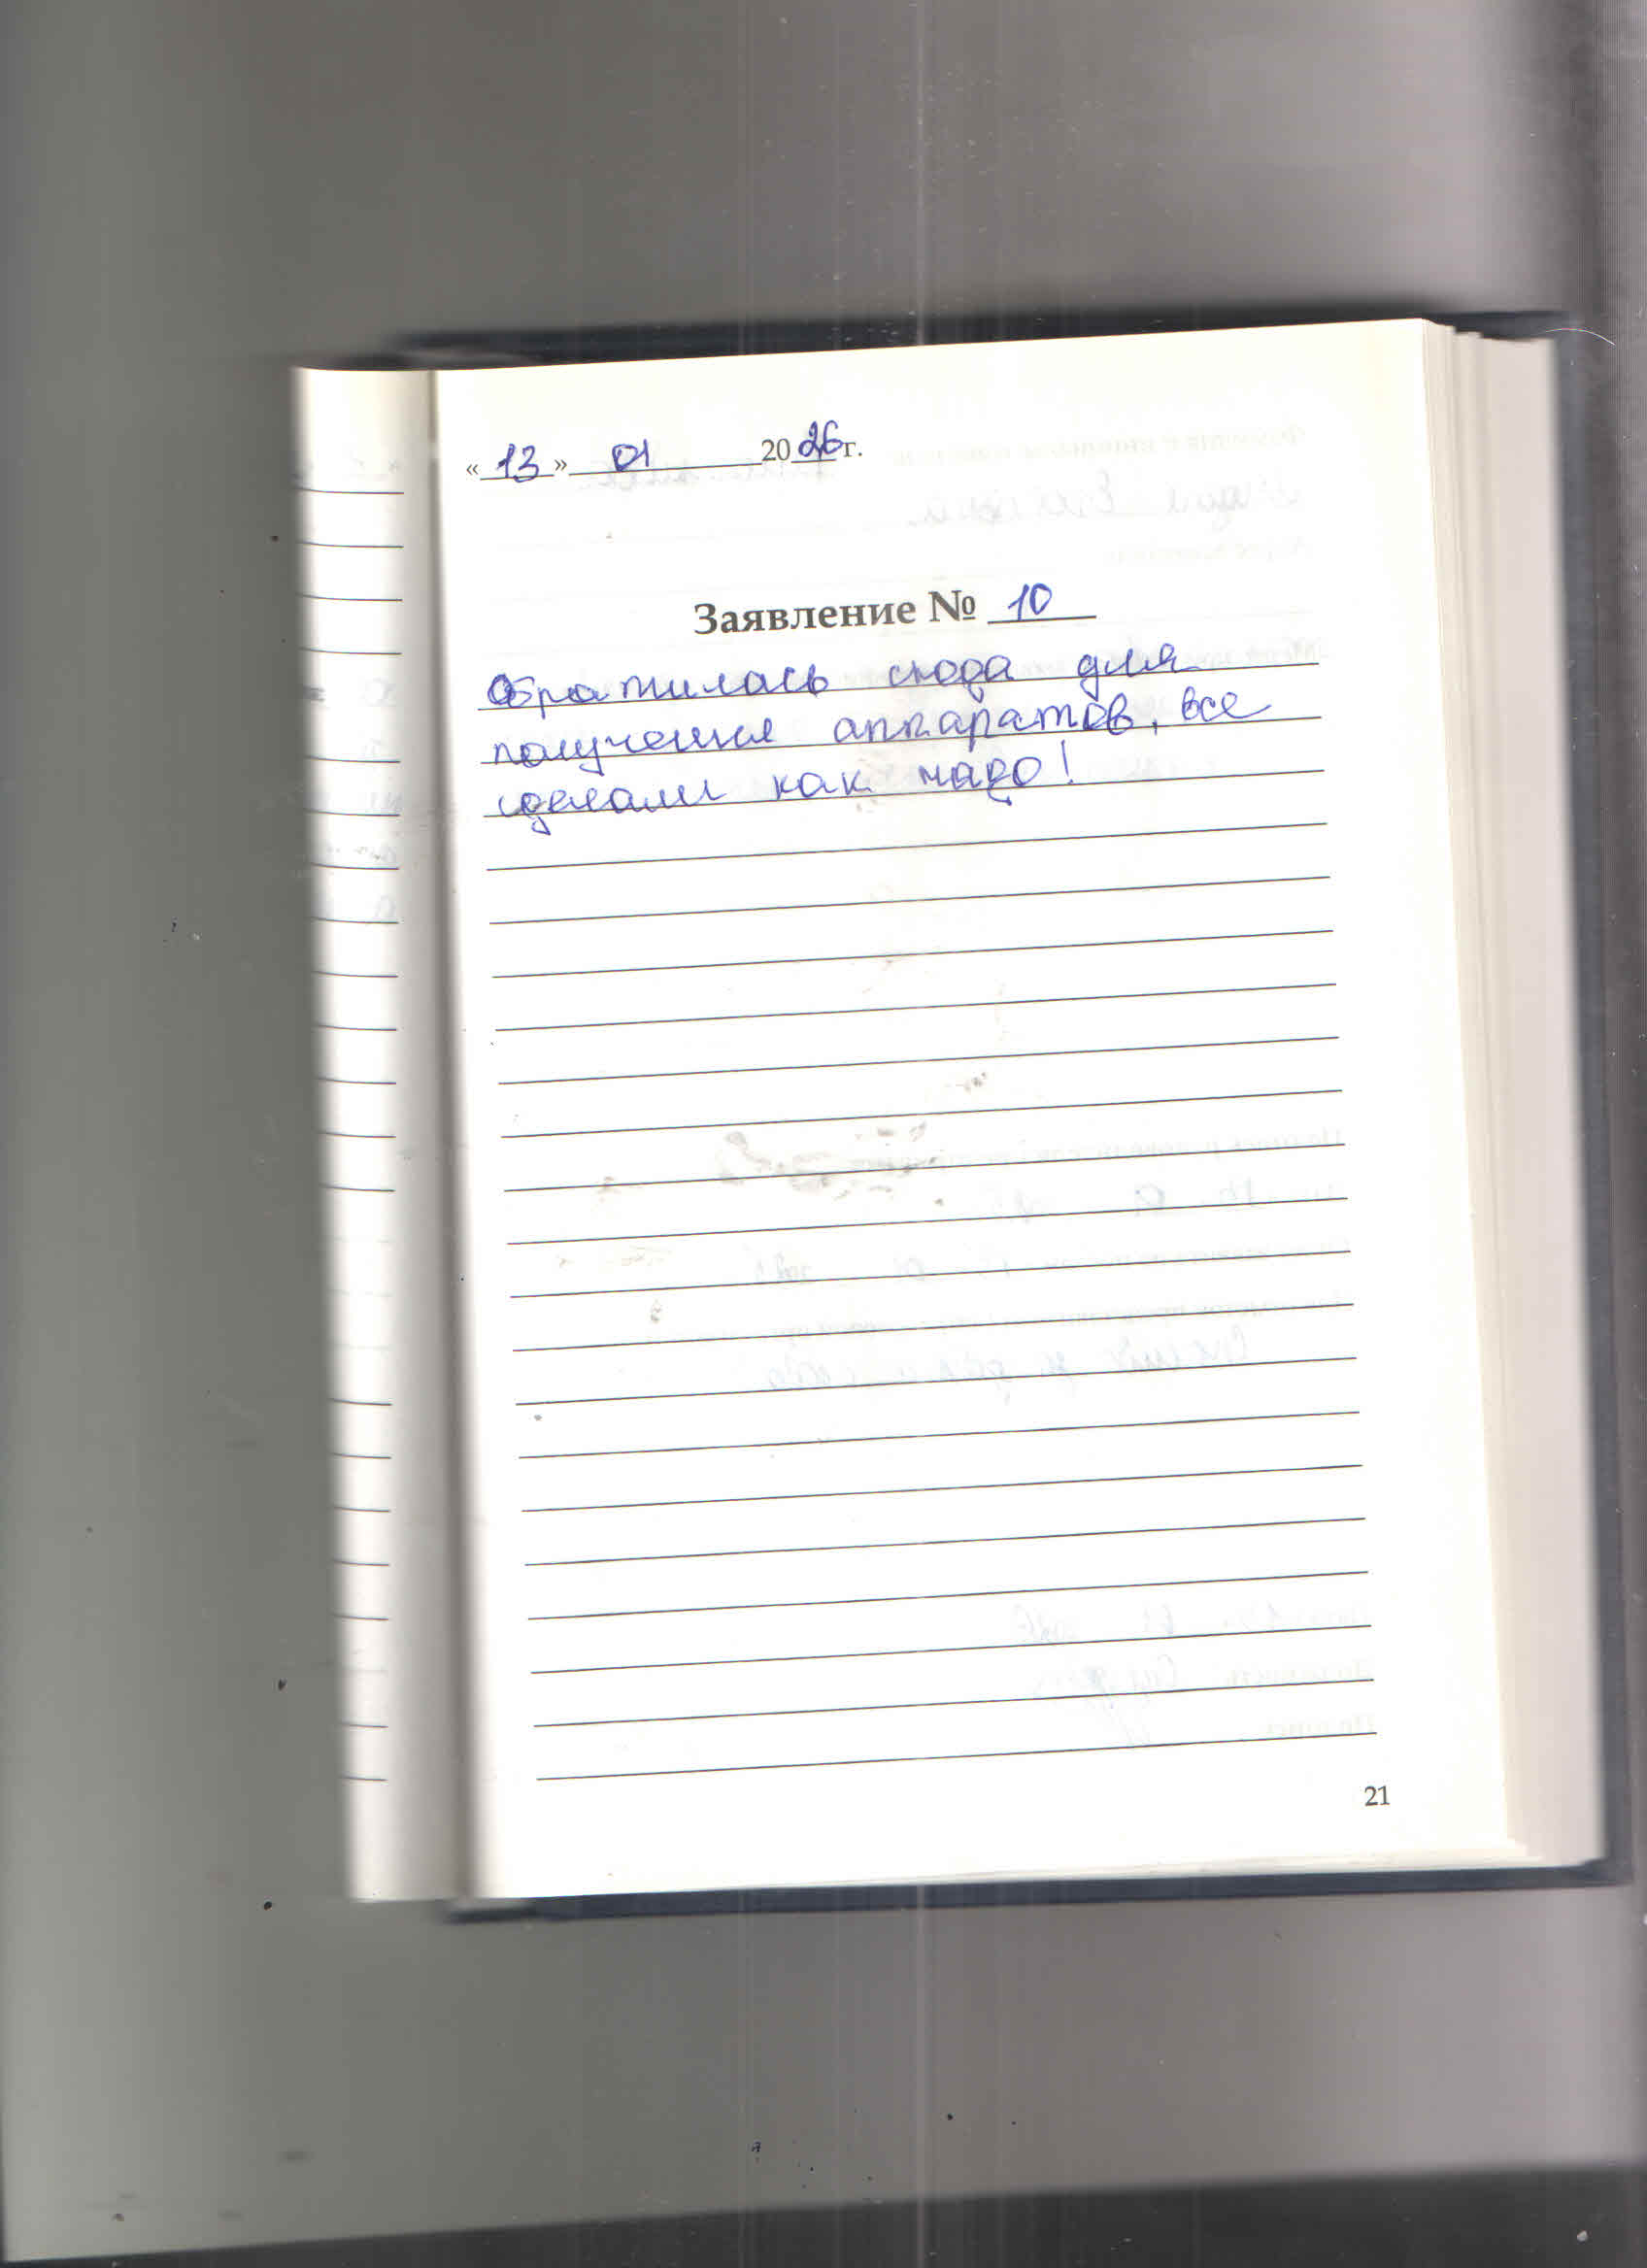 «13» 01 2026 г.
Заявление № 10
Обратилась сюда для
получения аппаратов, все
сделали как надо!
21